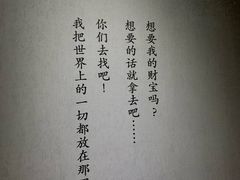 想要我的财宝吗?
想要的话就拿去吧……
你们去找吧!
我把世界上的一切都放在那